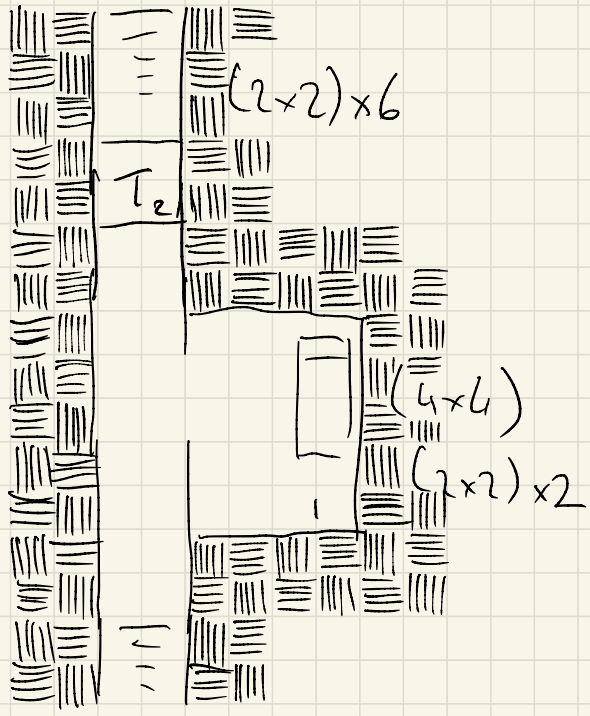 (2×2)×6
T2
(4×4)
(2×2)×2
1